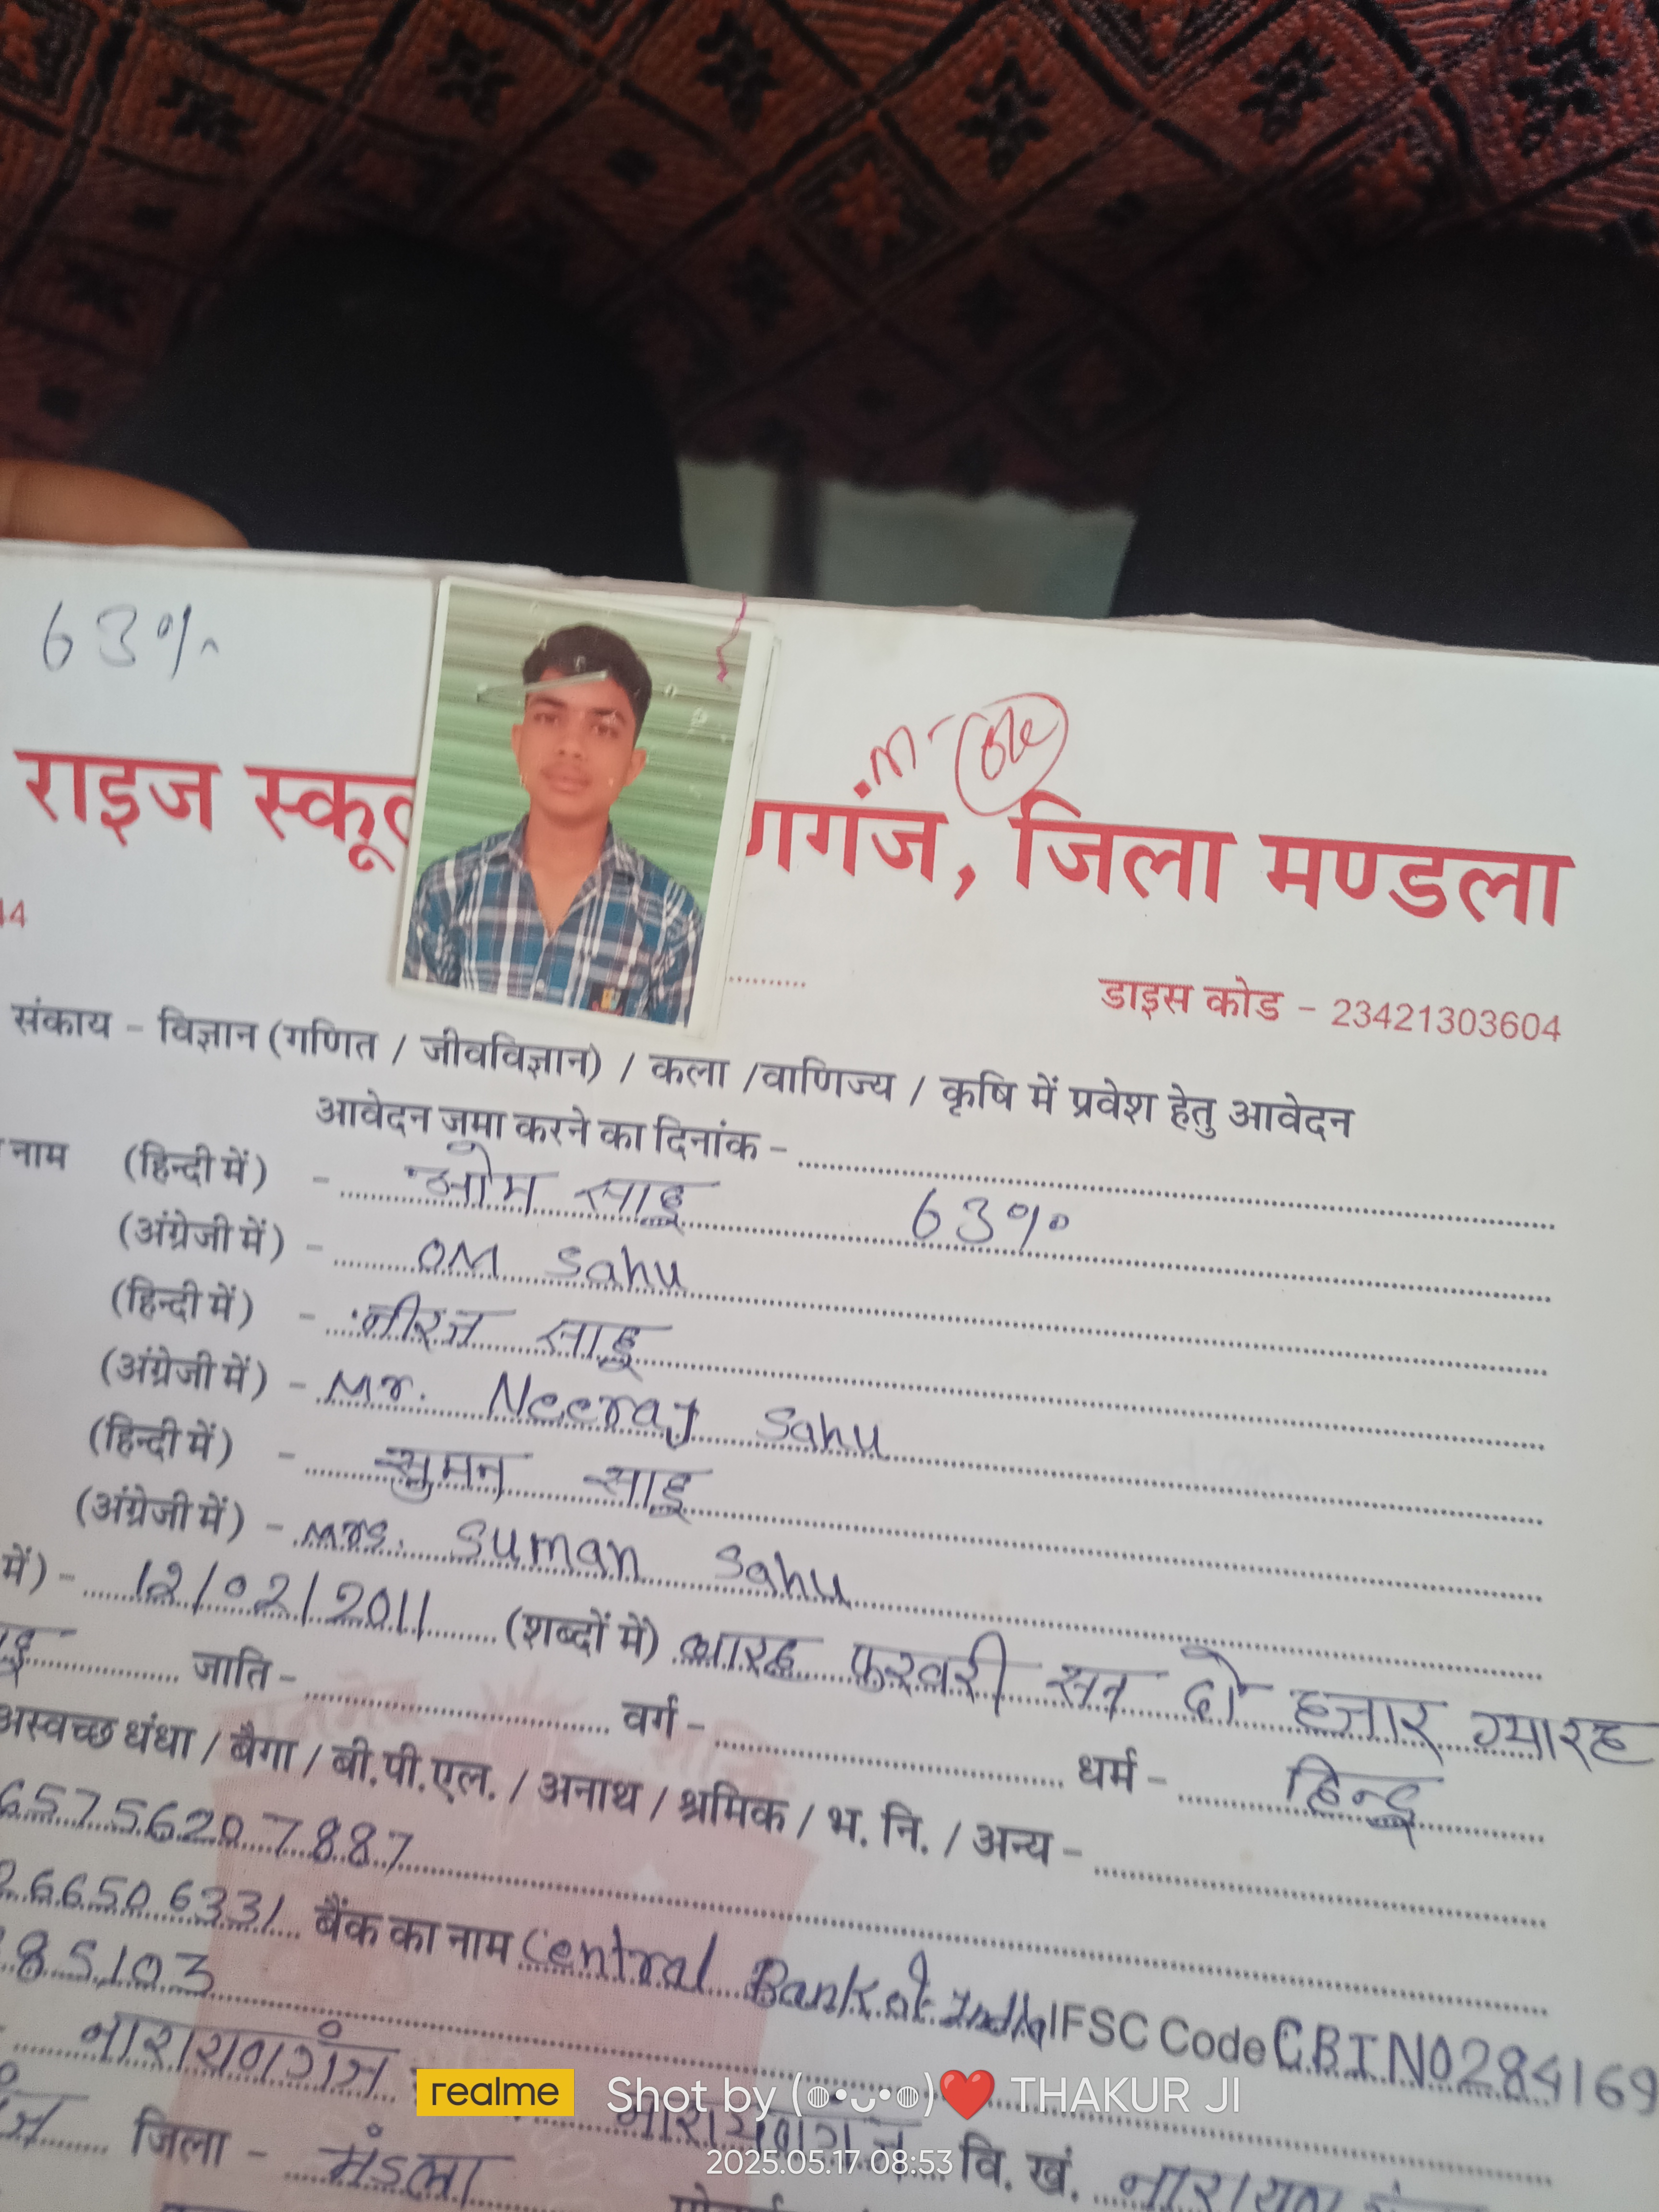 63%
m- ok
राइज स्कूल गगंज, जिला मण्डला
44
डाइस कोड - 23421303604
संकाय - विज्ञान (गणित / जीवविज्ञान) / कला /वाणिज्य / कृषि में प्रवेश हेतु आवेदन
आवेदन जमा करने का दिनांक -
नाम (हिन्दी में) - ओम साहू 63%
(अंग्रेजी में) - OM Sahu
(हिन्दी में) - नीरज साहू
(अंग्रेजी में) - Mr. Neeraj Sahu
(हिन्दी में) - सुमन साहू
(अंग्रेजी में) - Mrs. Suman Sahu
में) - 12/02/2011 (शब्दों में) बारह फरवरी सन दो हजार ग्यारह
जाति - वर्ग - धर्म - हिन्दू
अस्वच्छ धंधा / बैगा / बी.पी.एल. / अनाथ / श्रमिक / भ. नि. / अन्य -
65756207887
266506331 बैंक का नाम Central Bank of India IFSC Code CBIN0284169
85103
नारायणगंज
नारायणगंज वि. खं. नारायणगंज
जिला - मंडला
realme Shot by (๑•ᴗ•๑)❤️ THAKUR JI
2025.05.17 08:53